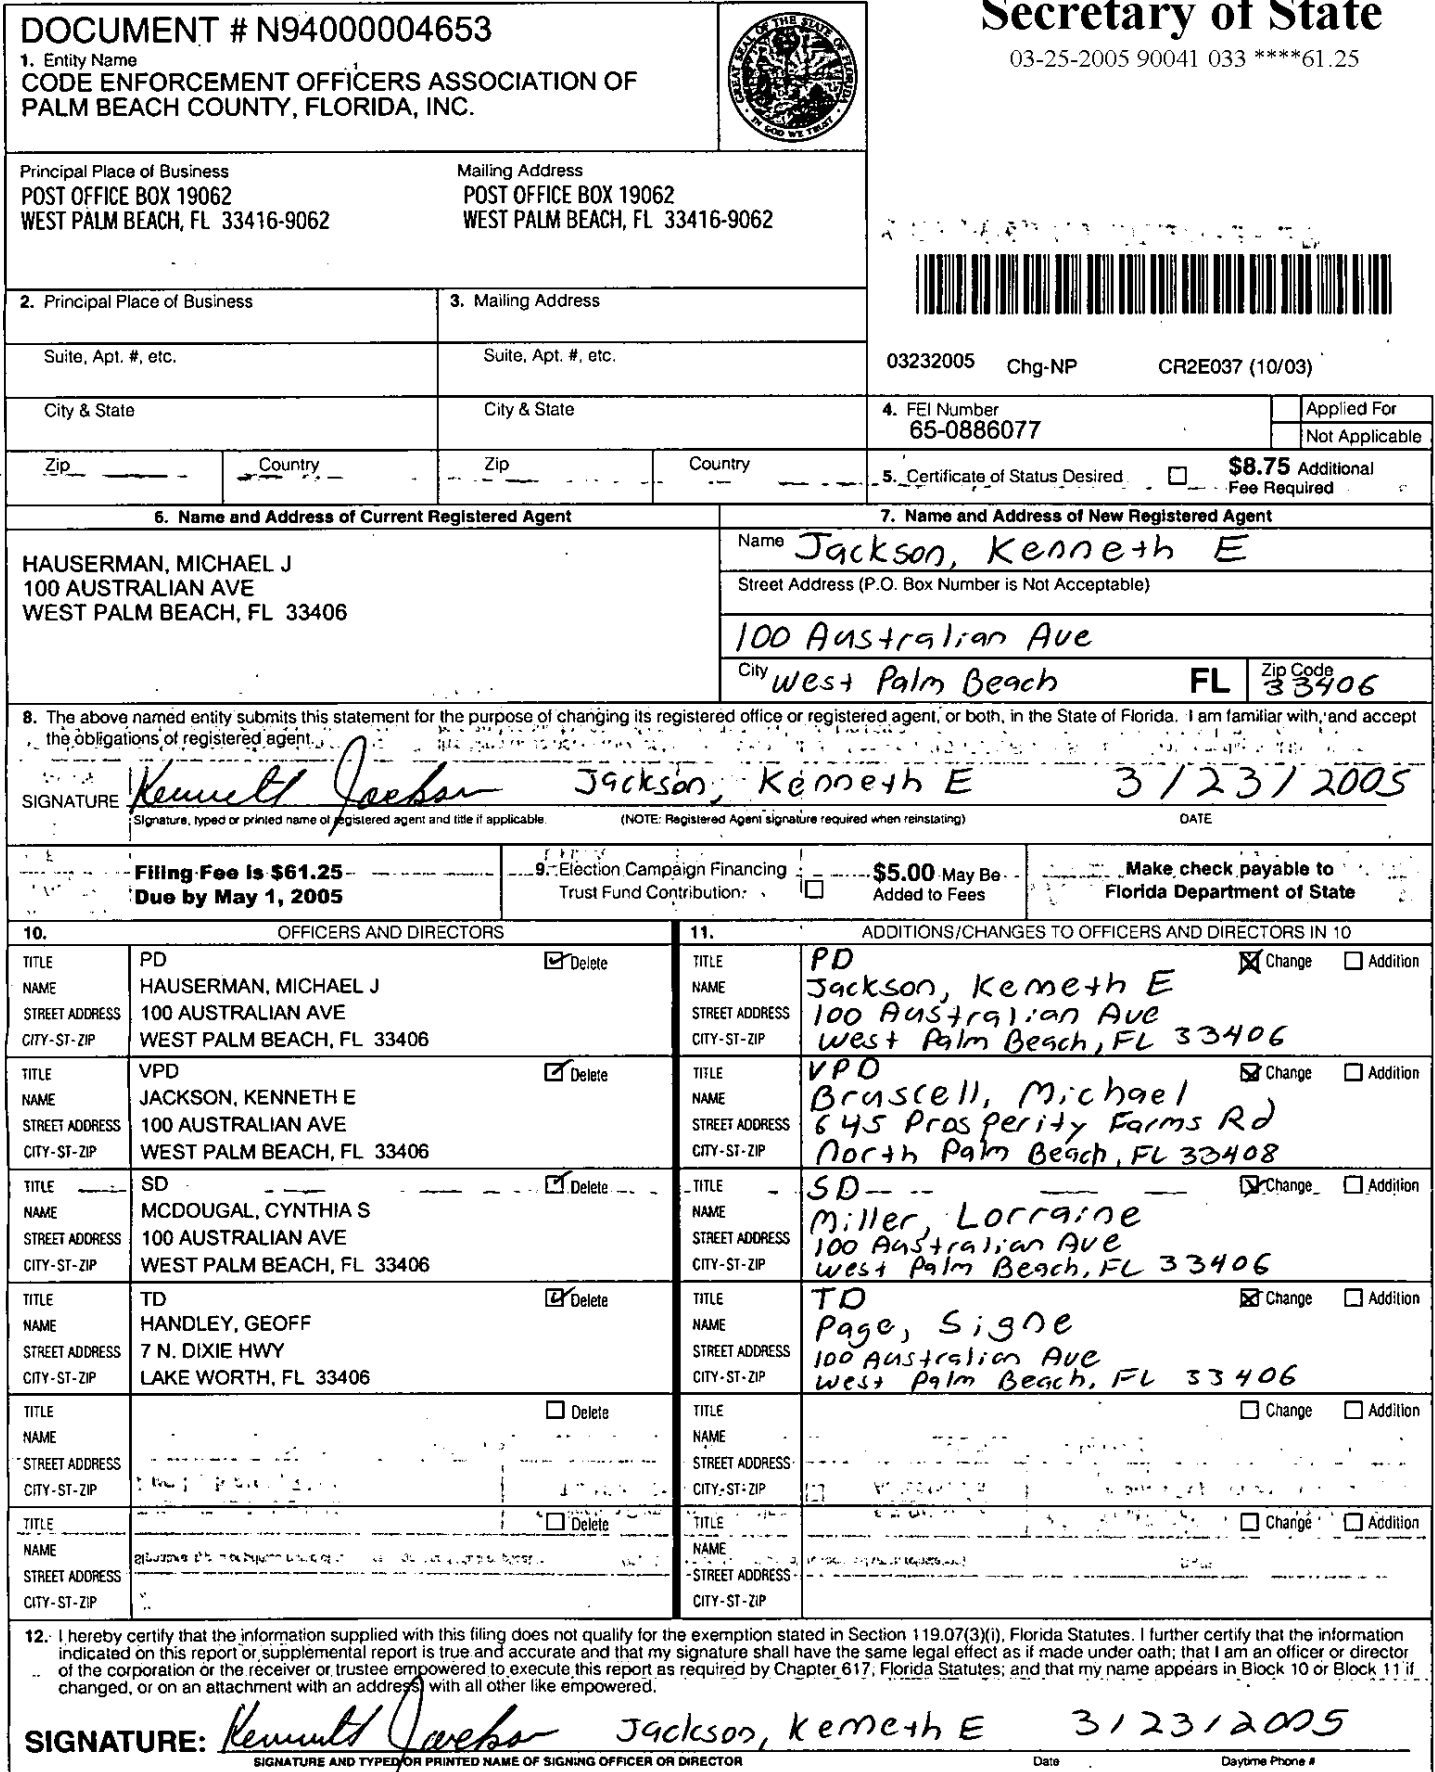 DOCUMENT # N94000004653
Secretary of State
03-25-2005 90041 033 ****61.25
1. Entity Name
CODE ENFORCEMENT OFFICERS ASSOCIATION OF
PALM BEACH COUNTY, FLORIDA, INC.
GREAT SEAL OF THE STATE OF FLORIDA
IN GOD WE TRUST
Principal Place of Business
POST OFFICE BOX 19062
WEST PALM BEACH, FL 33416-9062
Mailing Address
POST OFFICE BOX 19062
WEST PALM BEACH, FL 33416-9062
2. Principal Place of Business
3. Mailing Address
Suite, Apt. #, etc.
Suite, Apt. #, etc.
03232005 Chg-NP CR2E037 (10/03)
City & State
City & State
4. FEI Number
65-0886077
Applied For
Not Applicable
Zip
Country
Zip
Country
5. Certificate of Status Desired
$8.75 Additional
Fee Required
6. Name and Address of Current Registered Agent
HAUSERMAN, MICHAEL J
100 AUSTRALIAN AVE
WEST PALM BEACH, FL 33406
7. Name and Address of New Registered Agent
Name Jackson, Kenneth E
Street Address (P.O. Box Number is Not Acceptable)
100 Australian Ave
City West Palm Beach FL Zip Code 33406
8. The above named entity submits this statement for the purpose of changing its registered office or registered agent, or both, in the State of Florida. I am familiar with, and accept
the obligations of registered agent.
SIGNATURE Kenneth Jackson Jackson, Kenneth E 3/23/2005
Signature, typed or printed name of registered agent and title if applicable. (NOTE: Registered Agent signature required when reinstating) DATE
Filing Fee is $61.25
Due by May 1, 2005
9. Election Campaign Financing
Trust Fund Contribution.
$5.00 May Be
Added to Fees
Make check payable to
Florida Department of State
10. OFFICERS AND DIRECTORS
11. ADDITIONS/CHANGES TO OFFICERS AND DIRECTORS IN 10
TITLE PD Delete
NAME HAUSERMAN, MICHAEL J
STREET ADDRESS 100 AUSTRALIAN AVE
CITY-ST-ZIP WEST PALM BEACH, FL 33406
TITLE PD Change Addition
NAME Jackson, Kenneth E
STREET ADDRESS 100 Australian Ave
CITY-ST-ZIP West Palm Beach, FL 33406
TITLE VPD Delete
NAME JACKSON, KENNETH E
STREET ADDRESS 100 AUSTRALIAN AVE
CITY-ST-ZIP WEST PALM BEACH, FL 33406
TITLE VPD Change Addition
NAME Bruscell, Michael
STREET ADDRESS 645 Prosperity Farms Rd
CITY-ST-ZIP North Palm Beach, FL 33408
TITLE SD Delete
NAME MCDOUGAL, CYNTHIA S
STREET ADDRESS 100 AUSTRALIAN AVE
CITY-ST-ZIP WEST PALM BEACH, FL 33406
TITLE SD Change Addition
NAME Miller, Lorraine
STREET ADDRESS 100 Australian Ave
CITY-ST-ZIP West Palm Beach, FL 33406
TITLE TD Delete
NAME HANDLEY, GEOFF
STREET ADDRESS 7 N. DIXIE HWY
CITY-ST-ZIP LAKE WORTH, FL 33406
TITLE TD Change Addition
NAME Page, Signe
STREET ADDRESS 100 Australian Ave
CITY-ST-ZIP West Palm Beach, FL 33406
TITLE Delete
NAME
STREET ADDRESS
CITY-ST-ZIP
TITLE Change Addition
NAME
STREET ADDRESS
CITY-ST-ZIP
TITLE Delete
NAME
STREET ADDRESS
CITY-ST-ZIP
TITLE Change Addition
NAME
STREET ADDRESS
CITY-ST-ZIP
12. I hereby certify that the information supplied with this filing does not qualify for the exemption stated in Section 119.07(3)(i), Florida Statutes. I further certify that the information
indicated on this report or supplemental report is true and accurate and that my signature shall have the same legal effect as if made under oath; that I am an officer or director
of the corporation or the receiver or trustee empowered to execute this report as required by Chapter 617, Florida Statutes; and that my name appears in Block 10 or Block 11 if
changed, or on an attachment with an address, with all other like empowered.
SIGNATURE: Kenneth Jackson Jackson, Kenneth E 3/23/2005
SIGNATURE AND TYPED OR PRINTED NAME OF SIGNING OFFICER OR DIRECTOR Date Daytime Phone #